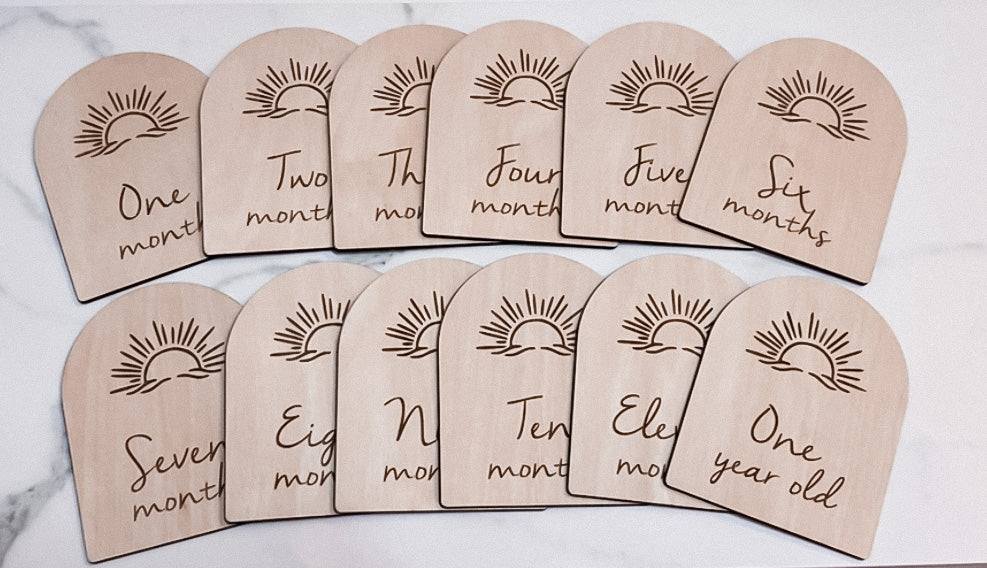 One
month
Two
month
Th
mo
Four
month
Five
mont
Six
months
Seven
month
Eig
mon
N
mo
Ten
mont
Ele
mo
One
year old